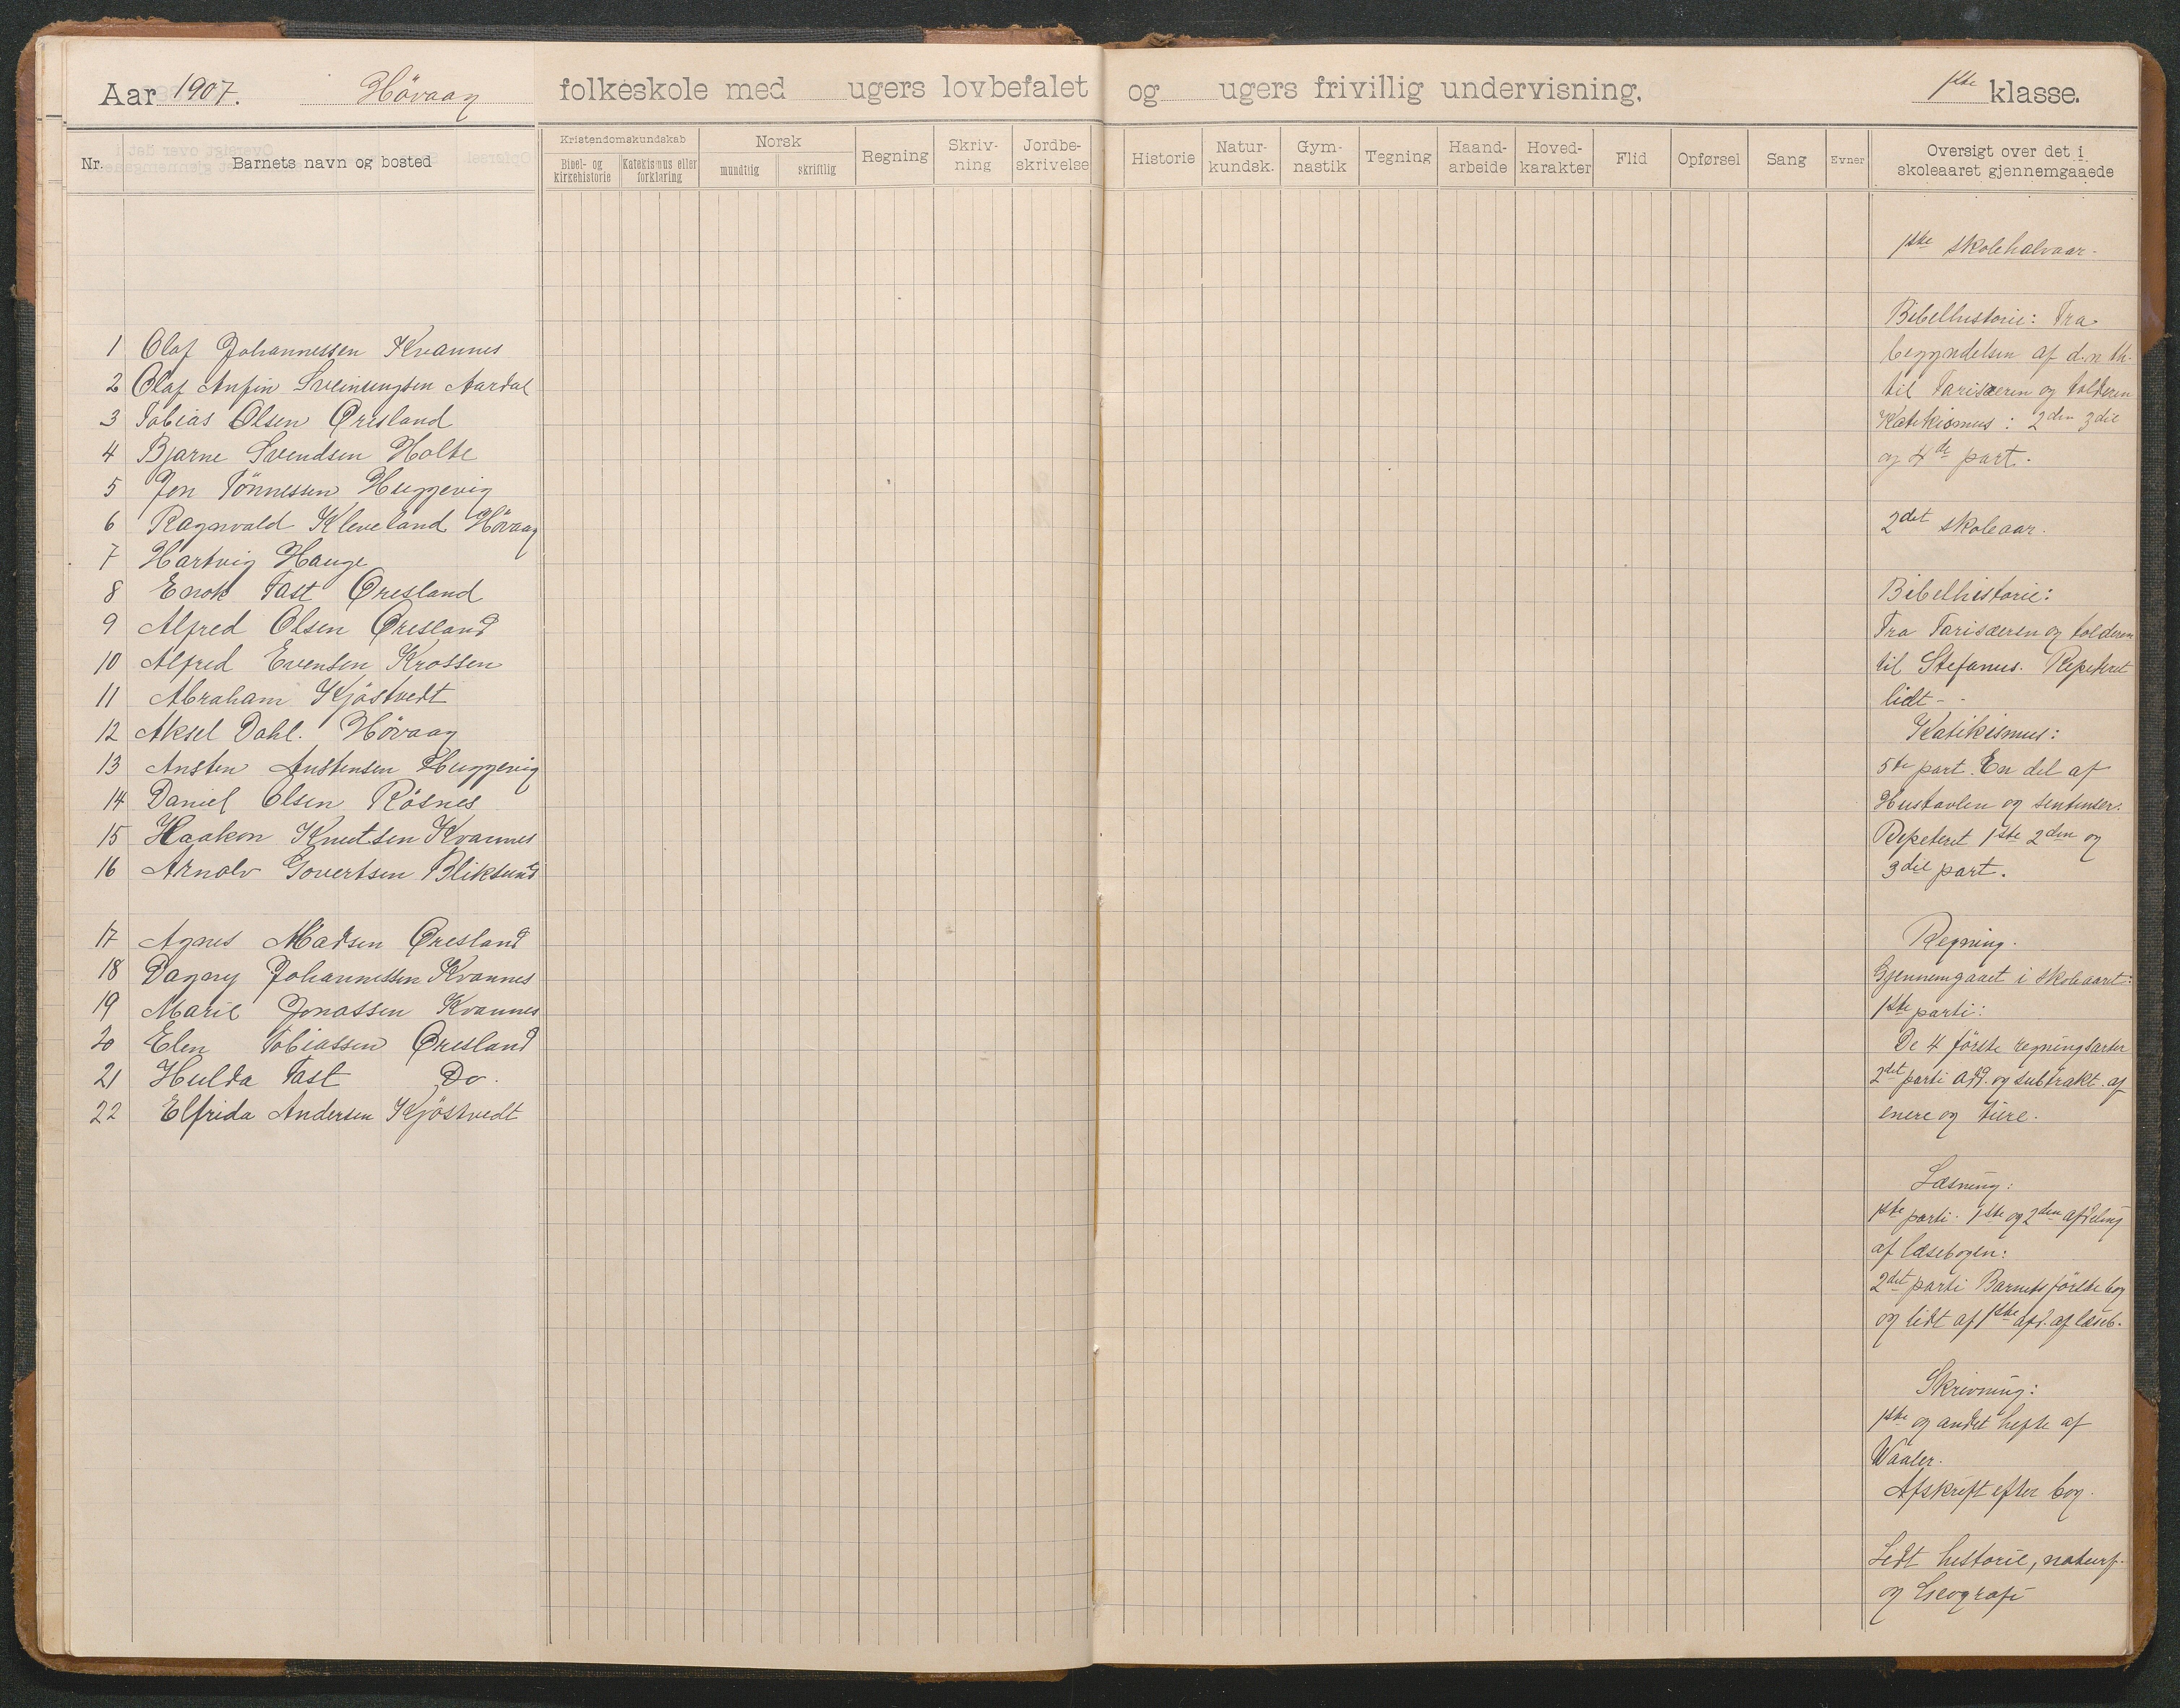 Aar 1907. Høvaag folkeskole med ugers lovbefalet og ugers frivillig undervisning, 1ste klasse.
Nr. Barnets navn og bosted
Kristendomskundskab
Bibel- og kirkehistorie
Katekismus eller forklaring
Norsk
mundtlig
skriftlig
Regning
Skriv-
ning
Jordbe-
skrivelse
Historie
Natur-
kundsk.
Gym-
nastik
Tegning
Haand-
arbeide
Hoved-
karakter
Flid
Opførsel
Sang
Evner
Oversigt over det i
skoleaaret gjennemgaaede
1 Olaf Johannessen Kvannes
2 Olaf Anfin Sveinungsen Aardal
3 Tobias Olsen Øresland
4 Bjarne Svendsen Holte
5 Jon Tönnessen Huggevig
6 Ragnvald Kleveland Hövaag
7 Hartvig Hauge
8 Enok Fast Øresland
9 Alfred Olsen Øresland
10 Alfred Evensen Krossen
11 Abraham Kjöstvedt
12 Aksel Dahl. Hövaag
13 Ansten Anstensen Huggevig
14 Daniel Olsen Rösnes
15 Haakon Knutsen Kvannes
16 Arnolv Govertsen Bliksund
17 Agnes Madsen Øresland
18 Dagny Johannessen Kvannes
19 Marie Jonassen Kvannes
20 Elen Tobiassen Øresland
21 Hulda Fast Do.
22 Elfrida Andersen Kjöstvedt
1ste skolehalvaar.
Bibelhistorie: Fra
begyndelsen af d. n. th.
til Fariseeren og tolderen
Katekismus: 2den 3die
og 4de part.
2det skoleaar.
Bibelhistorie:
Fra Farisæeren og tolderen
til Stefanus. Repeteret
lidt -
Katikismus:
5te part. En del af
Hustavlen og sentenser.
Repeteret 1ste 2den og
3die part.
Regning.
Gjennemgaaet i skoleaaret:
1ste parti:
De 4 förste regningsarter
2det parti add. og subtrakt. af
enere og tiere.
Læsning:
1ste parti. 1ste og 2den afdeling
af læsebogen:
2det parti Barnets förste bog
og lidt af 1ste afd. af læseb.
Skrivning:
1ste og andet hefte af
Waaler.
Afskrift efter bog.
Lidt historie, naturf.
og Geografi